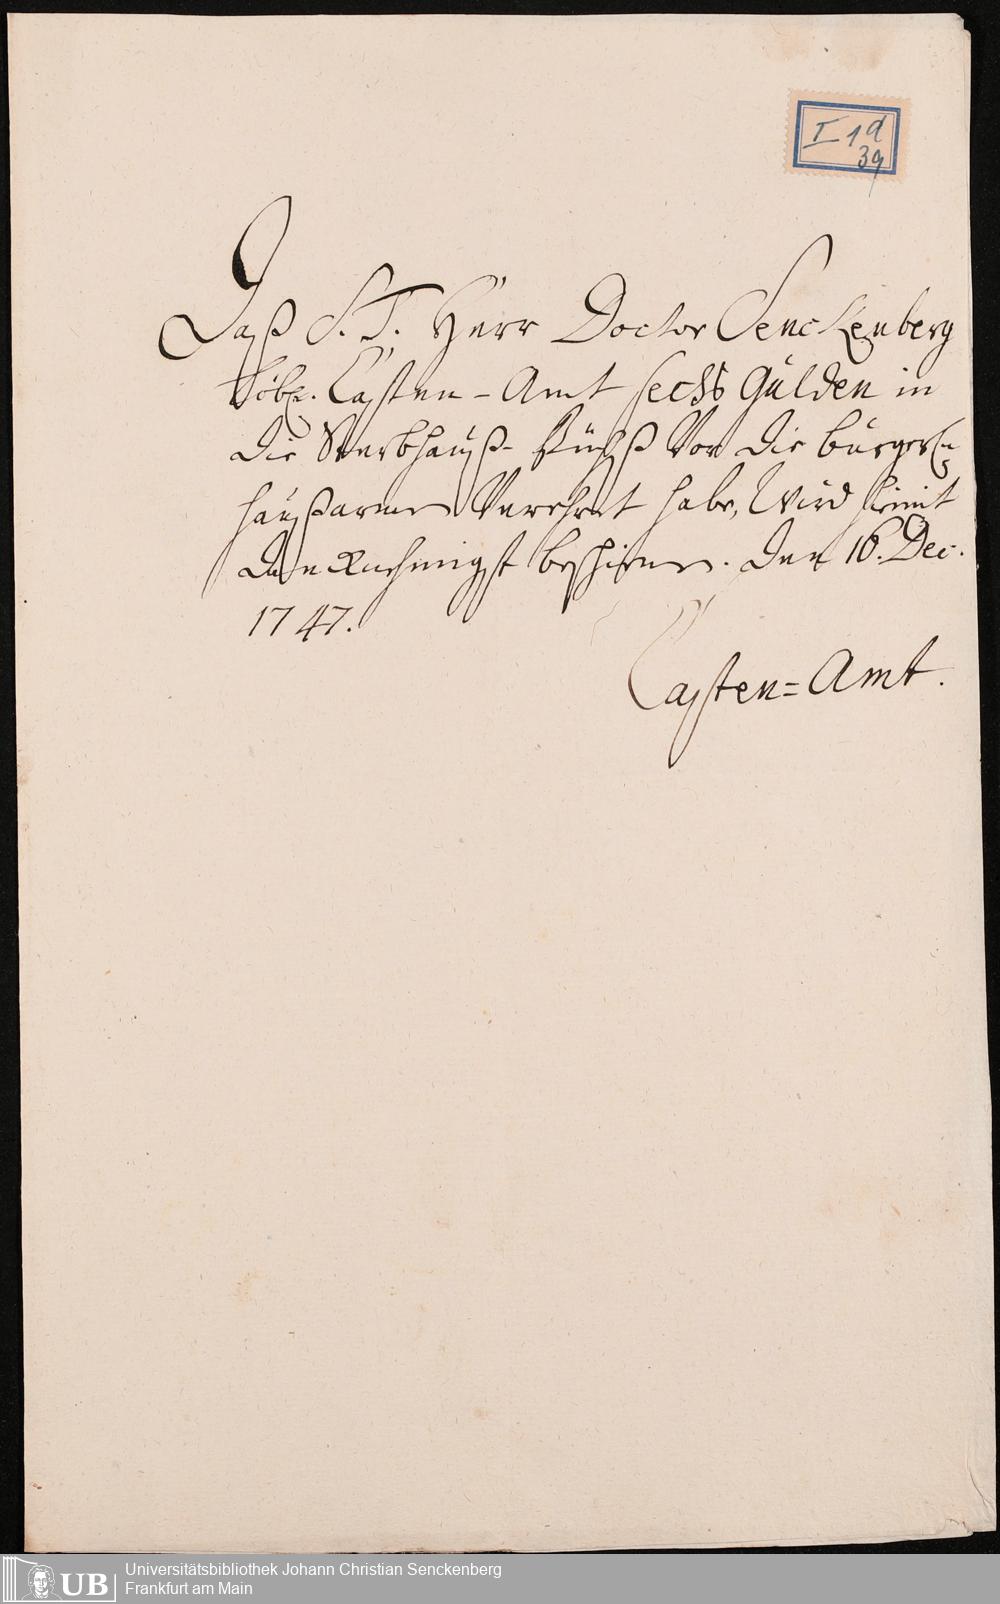 I 1 d
39
Daß S. T. Herr Doctor Senckenberg
Löbl. Casten-Amt sechs Gulden in
die Sterbhauß-Büchß Vor die bürgerl.
haußarmen Verehret habe, Wird hiemit
danckнehmigst bescheinet. den 16. Dec.
1747.
Casten=Amt.
Universitätsbibliothek Johann Christian Senckenberg
UB Frankfurt am Main